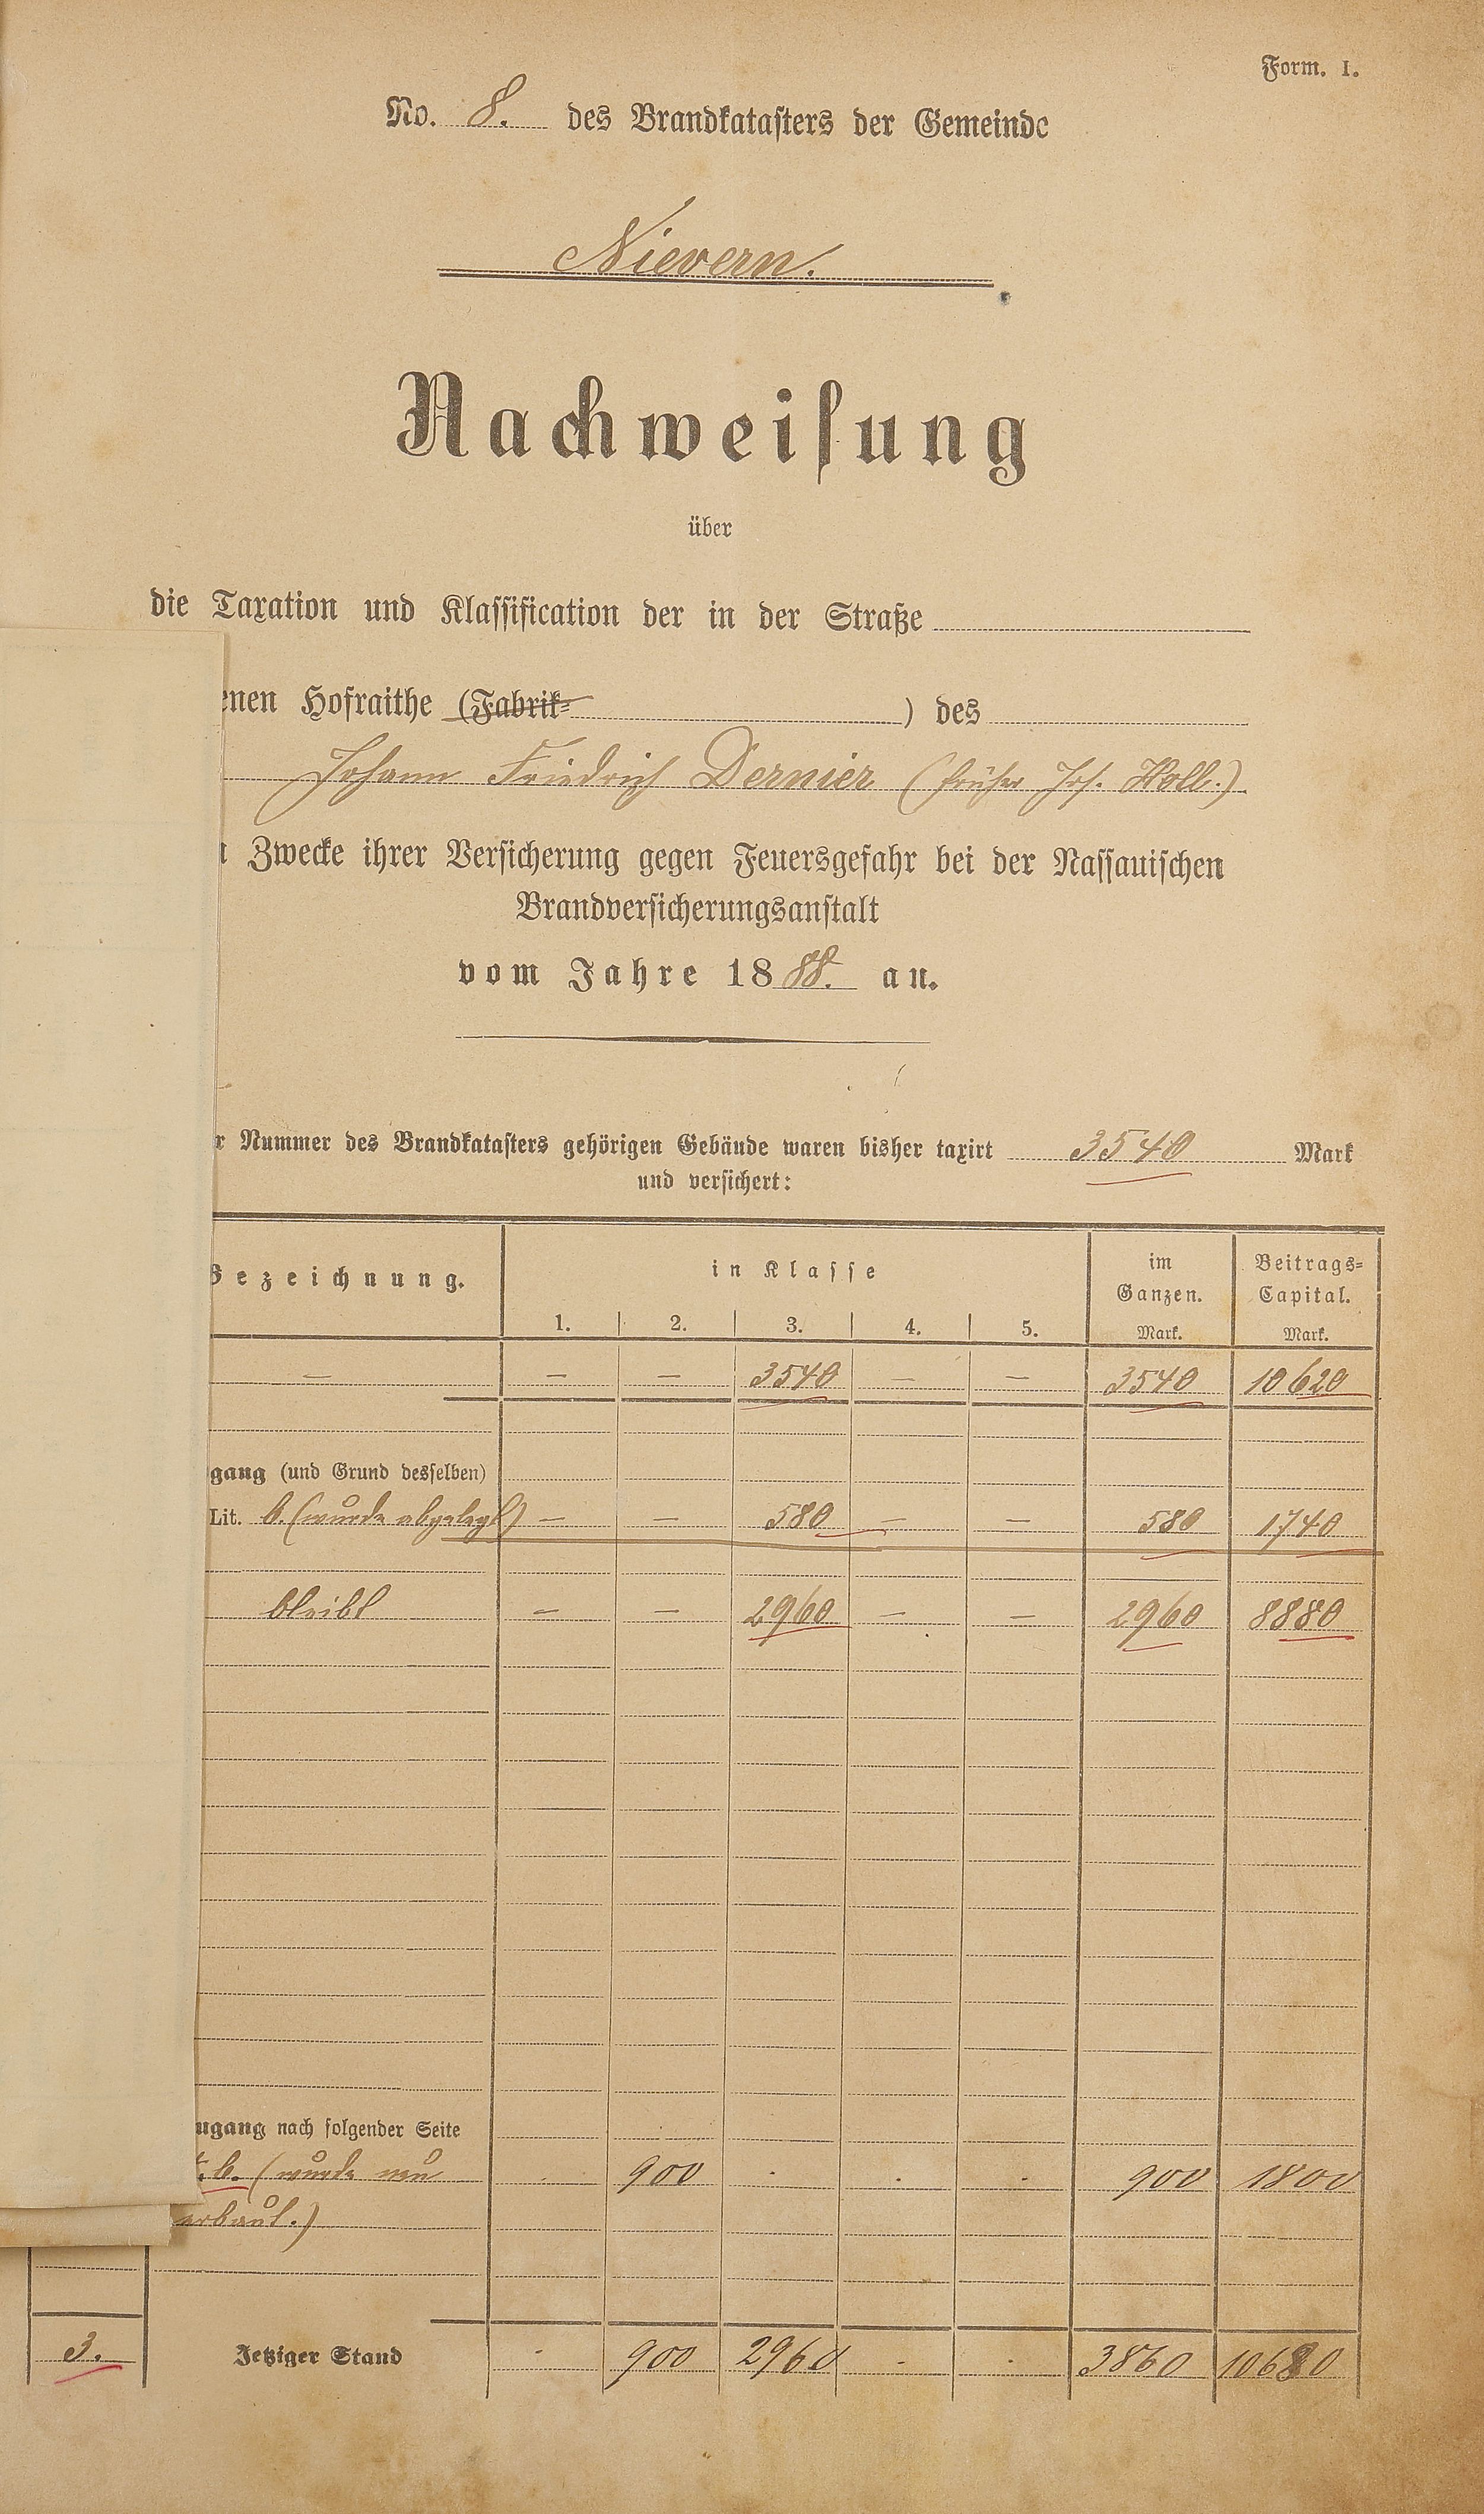 Form. I.
No. 8. des Brandkatasters der Gemeinde
Nievern.
Nachweisung
über
die Taxation und Klassification der in der Straße
enen Hofraithe (Fabrik- ) des
Johann Friedrich Dernier (früher Jos. Holl.)
Zwecke ihrer Versicherung gegen Feuersgefahr bei der Nassauischen
Brandversicherungsanstalt
vom Jahre 1888. an.
r Nummer des Brandkatasters gehörigen Gebäude waren bisher taxirt 3540 Mark
und versichert:
Bezeichnung. in Klasse im Ganzen. Beitrags-Capital.
1. 2. 3. 4. 5. Mark. Mark.
— — — 3540 — — 3540 10620
gang (und Grund desselben)
Lit. b. (wurde abgelegt) — — 580 — — 580 1740
bleibt — — 2960 — — 2960 8880
ugang nach folgender Seite
t. b. (wurde neu 900 900 1800
erbaut.)
3. Jetziger Stand 900 2960 3860 10680